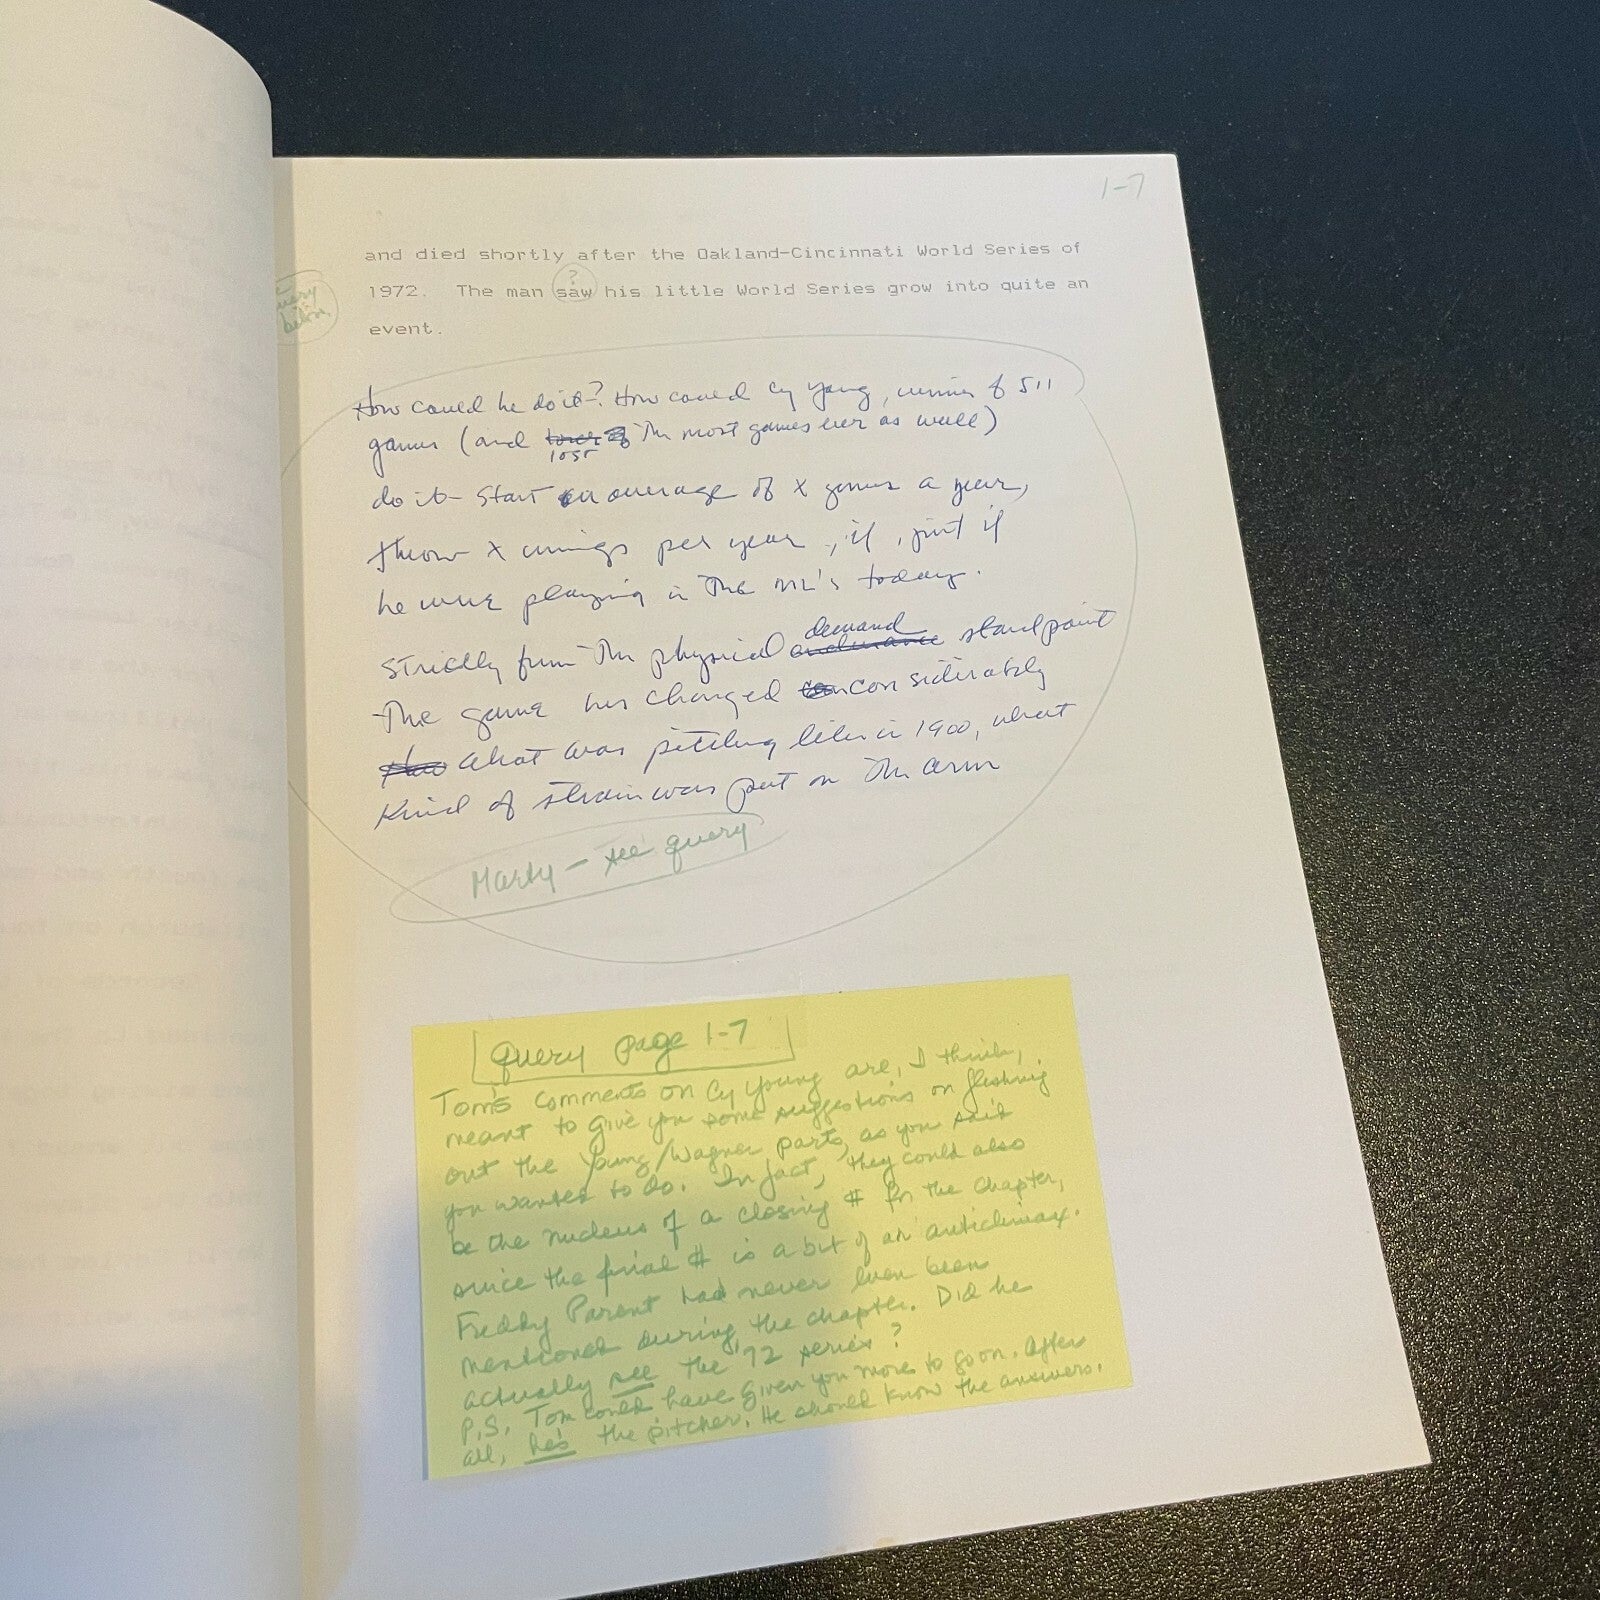 1-7
and died shortly after the Oakland-Cincinnati World Series of
?
1972. The man saw his little World Series grow into quite an
event.
query
below
How could he do it? How could Cy Young, winner of 511
games (and the most games ever as well)
lost
do it - start an average of X games a year,
throw X innings per year, if, just if
he were playing in the ML's today.
demand
Strictly from the physical endurance standpoint
The game has changed considerably
what was pitching like in 1900, what
Kind of strain was put on the arm
Marty - see query
Query page 1-7
Tom's comments on Cy Young are, I think,
meant to give you some suggestions on fleshing
out the Young/Wagner parts, as you said
you wanted to do. In fact, they could also
be the nucleus of a closing # for the chapter,
since the final # is a bit of an anticlimax.
Freddy Parent had never even been
mentioned during the chapter. Did he
actually see the '72 series?
P.S. Tom could have given you more to go on. After
all, he's the pitcher. He should know the answers.